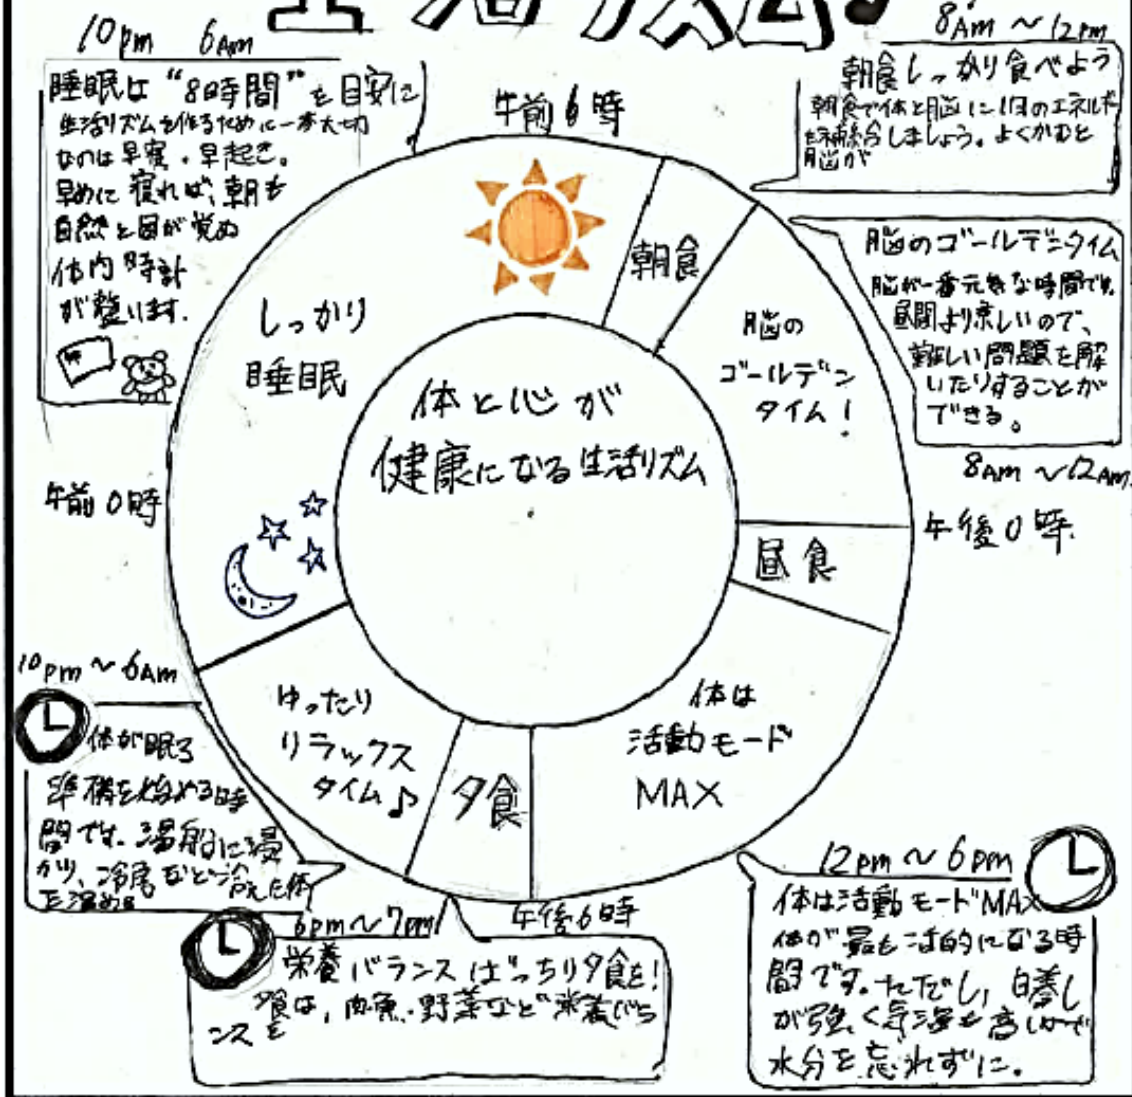 生活リズム♪
10pm 6AM
睡眠は“8時間”を目安に
生活リズムを作るために一番大切
なのは早寝・早起き。
早めに寝れば、朝も
自然と目が覚め
体内時計
が整います。
8AM ~ 12pm
朝食しっかり食べよう
朝食で体と脳に1日のエネルギー
を補給しましょう。よくかむと
脳が
脳のゴールデンタイム
脳が一番元気な時間です。
昼間より涼しいので、
難しい問題を解
いたりすることが
できる。
8AM ~ 12AM
午前6時
朝食
脳の
ゴールデン
タイム!
しっかり
睡眠
体と心が
健康になる生活リズム
午前0時
午後0時
昼食
体は
活動モード
MAX
夕食
ゆったり
リラックス
タイム♪
午後6時
10pm ~ 6AM
体が眠る
準備を始める時
間です。湯船に浸
かり、冷房などで冷えた体
を温める
6pm~7pm
栄養バランスばっちり夕食を!
夕食は,肉魚・野菜など栄養バラ
ンスを
12pm ~ 6pm
体は活動モードMAX
体が最も活的になる時
間です。ただし,日差し
が強く気温も高いので
水分を忘れずに。